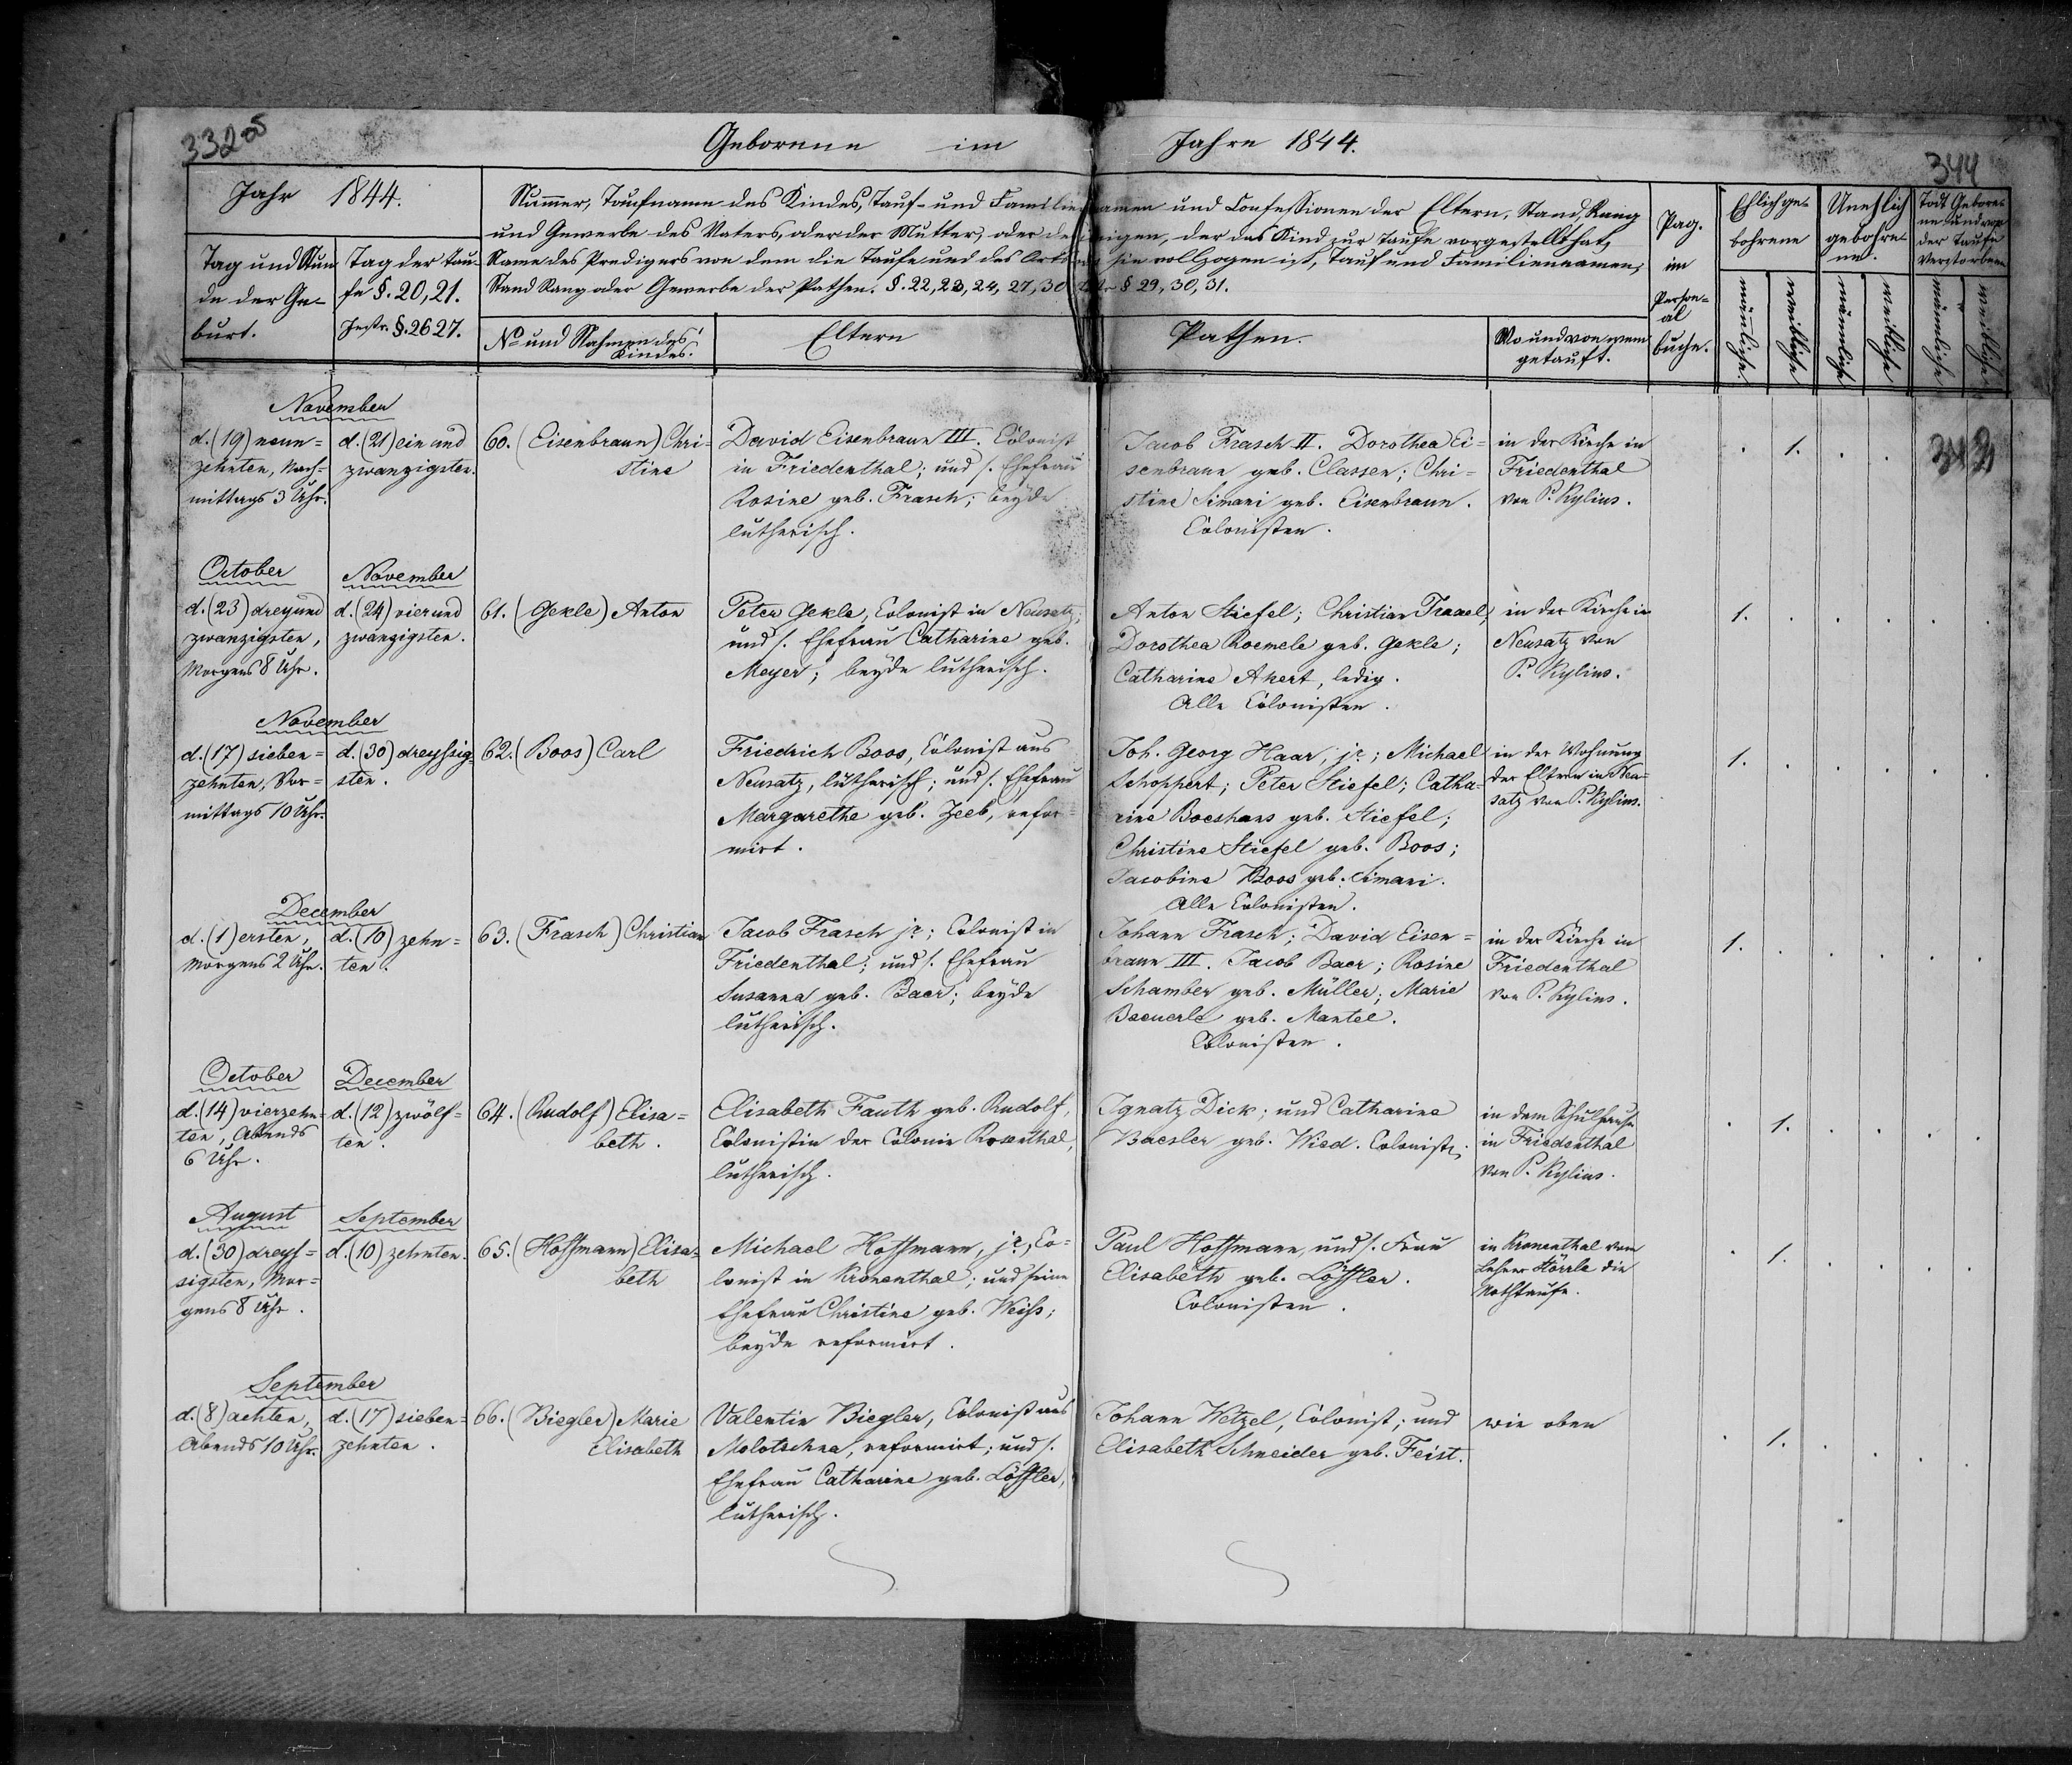 332 05
Geborene im Jahre 1844.
344
Jahr 1844.
Nummer, Taufname des Kindes, Tauf- und Familiennamen und Confessionen der Eltern, Stand, Rang
und Gewerbe des Vaters, oder der Mutter, oder desjenigen, der das Kind zur Taufe vorgestellt hat,
Name des Predigers von dem die Taufe und des Orts wo sie vollzogen ist, Tauf und Familiennamen,
Stand Rang oder Gewerbe der Pathen. §. 22, 23, 24, 27, 30 § 29, 30, 31.
Tag und Stun
de der Ge-
burt.
Tag der Tau-
fe §. 20, 21.
Instr. §. 26 27.
No und Nahmen des
Kindes.
Eltern
Pathen.
Wo und von wem
getauft.
Pag.
im
Person-
al
buche.
Ehlich ge-
bohrene
Unehlich
gebohre-
ne.
Todt Gebore-
ne und vor
der Taufe
Verstorbene
männliche
weibliche
männliche
weibliche
männliche
weibliche
November
d. (19) neun=
zehnten, Nach=
mittags 3 Uhr.
d. (21) ein und
zwanzigsten.
60. (Eisenbraun) Chri=
stine
David Eisenbraun III. Colonist
in Friedenthal; und s. Ehefrau
Rosine geb. Frasch; beyde
lutherisch.
Jacob Frasch II. Dorothea Ei=
senbraun geb. Classen; Chri=
stine Simani geb. Eisenbraun.
Colonisten.
in der Kirche in
Friedenthal
von P. Kylius.
1.
October
d. (23) dreyund
zwanzigsten,
Morgens 8 Uhr.
November
d. (24) vierund
zwanzigsten.
61. (Gekle) Anton
Peter Gekle, Colonist in Neusatz;
und s. Ehefrau Catharine geb.
Meyer; beyde lutherisch.
Anton Stiefel; Christian Traxel,
Dorothea Roemele geb. Gekle;
Catharine Akert, ledig.
Alle Colonisten.
in der Kirche in
Neusatz von
P. Kylius.
1.
November
d. (17) sieben=
zehnten, Vor=
mittags 10 Uhr.
d. (30) dreyssig=
sten.
62. (Boos) Carl
Friedrich Boos, Colonist aus
Neusatz, lutherisch; und s. Ehefrau
Margarethe geb. Zeeb, refor=
mirt.
Joh. Georg Haar, jr; Michael
Schoppert; Peter Stiefel; Catha=
rine Boeshans geb. Stiefel;
Christine Stiefel geb. Boos;
Jacobine Boos geb. Simani.
Alle Colonisten.
in der Wohnung
der Eltern in Neu=
satz von P. Kylius.
1.
December
d. (1) ersten,
Morgens 2 Uhr.
d. (10) zehn=
ten.
63. (Frasch) Christian
Jacob Frasch jr; Colonist in
Friedenthal; und s. Ehefrau
Susanna geb. Baer; beyde
lutherisch.
Johann Frasch; David Eisen=
braun III. Jacob Baer; Rosine
Schamber geb. Müller; Marie
Baeuerle geb. Mantel.
Colonisten.
in der Kirche in
Friedenthal
von P. Kylius.
1.
October
d. (14) vierzehn=
ten, Abends
6 Uhr.
December
d. (12) zwölf=
ten.
64. (Rudolf) Elisa=
beth.
Elisabeth Fauth geb. Rudolf,
Colonistin der Colonie Rosenthal,
lutherisch.
Ignatz Dick; und Catharine
Baesler geb. Wied. Colonist.
in dem Schulhause
in Friedenthal
von P. Kylius.
1.
August
d. (30) dreys=
sigsten, Mor=
gens 8 Uhr.
September
d. (10) zehnten.
65. (Hoffmann) Elisa=
beth
Michael Hoffmann, jr, Co=
lonist in Kronenthal; und seine
Ehefrau Christine geb. Weiss;
beyde reformirt.
Paul Hoffmann, und s. Frau
Elisabeth geb. Löffler.
Colonisten.
in Kronenthal vom
Lehrer Störrle die
Nothtaufe.
1.
September
d. (8) achten,
Abends 10 Uhr.
d. (17) sieben=
zehnten.
66. (Biegler) Marie
Elisabeth
Valentin Biegler, Colonist aus
Molotschna, reformirt; und s.
Ehefrau Catharine geb. Löffler,
lutherisch.
Johann Wetzel, Colonist; und
Elisabeth Schneider geb. Feist.
wie oben
1.